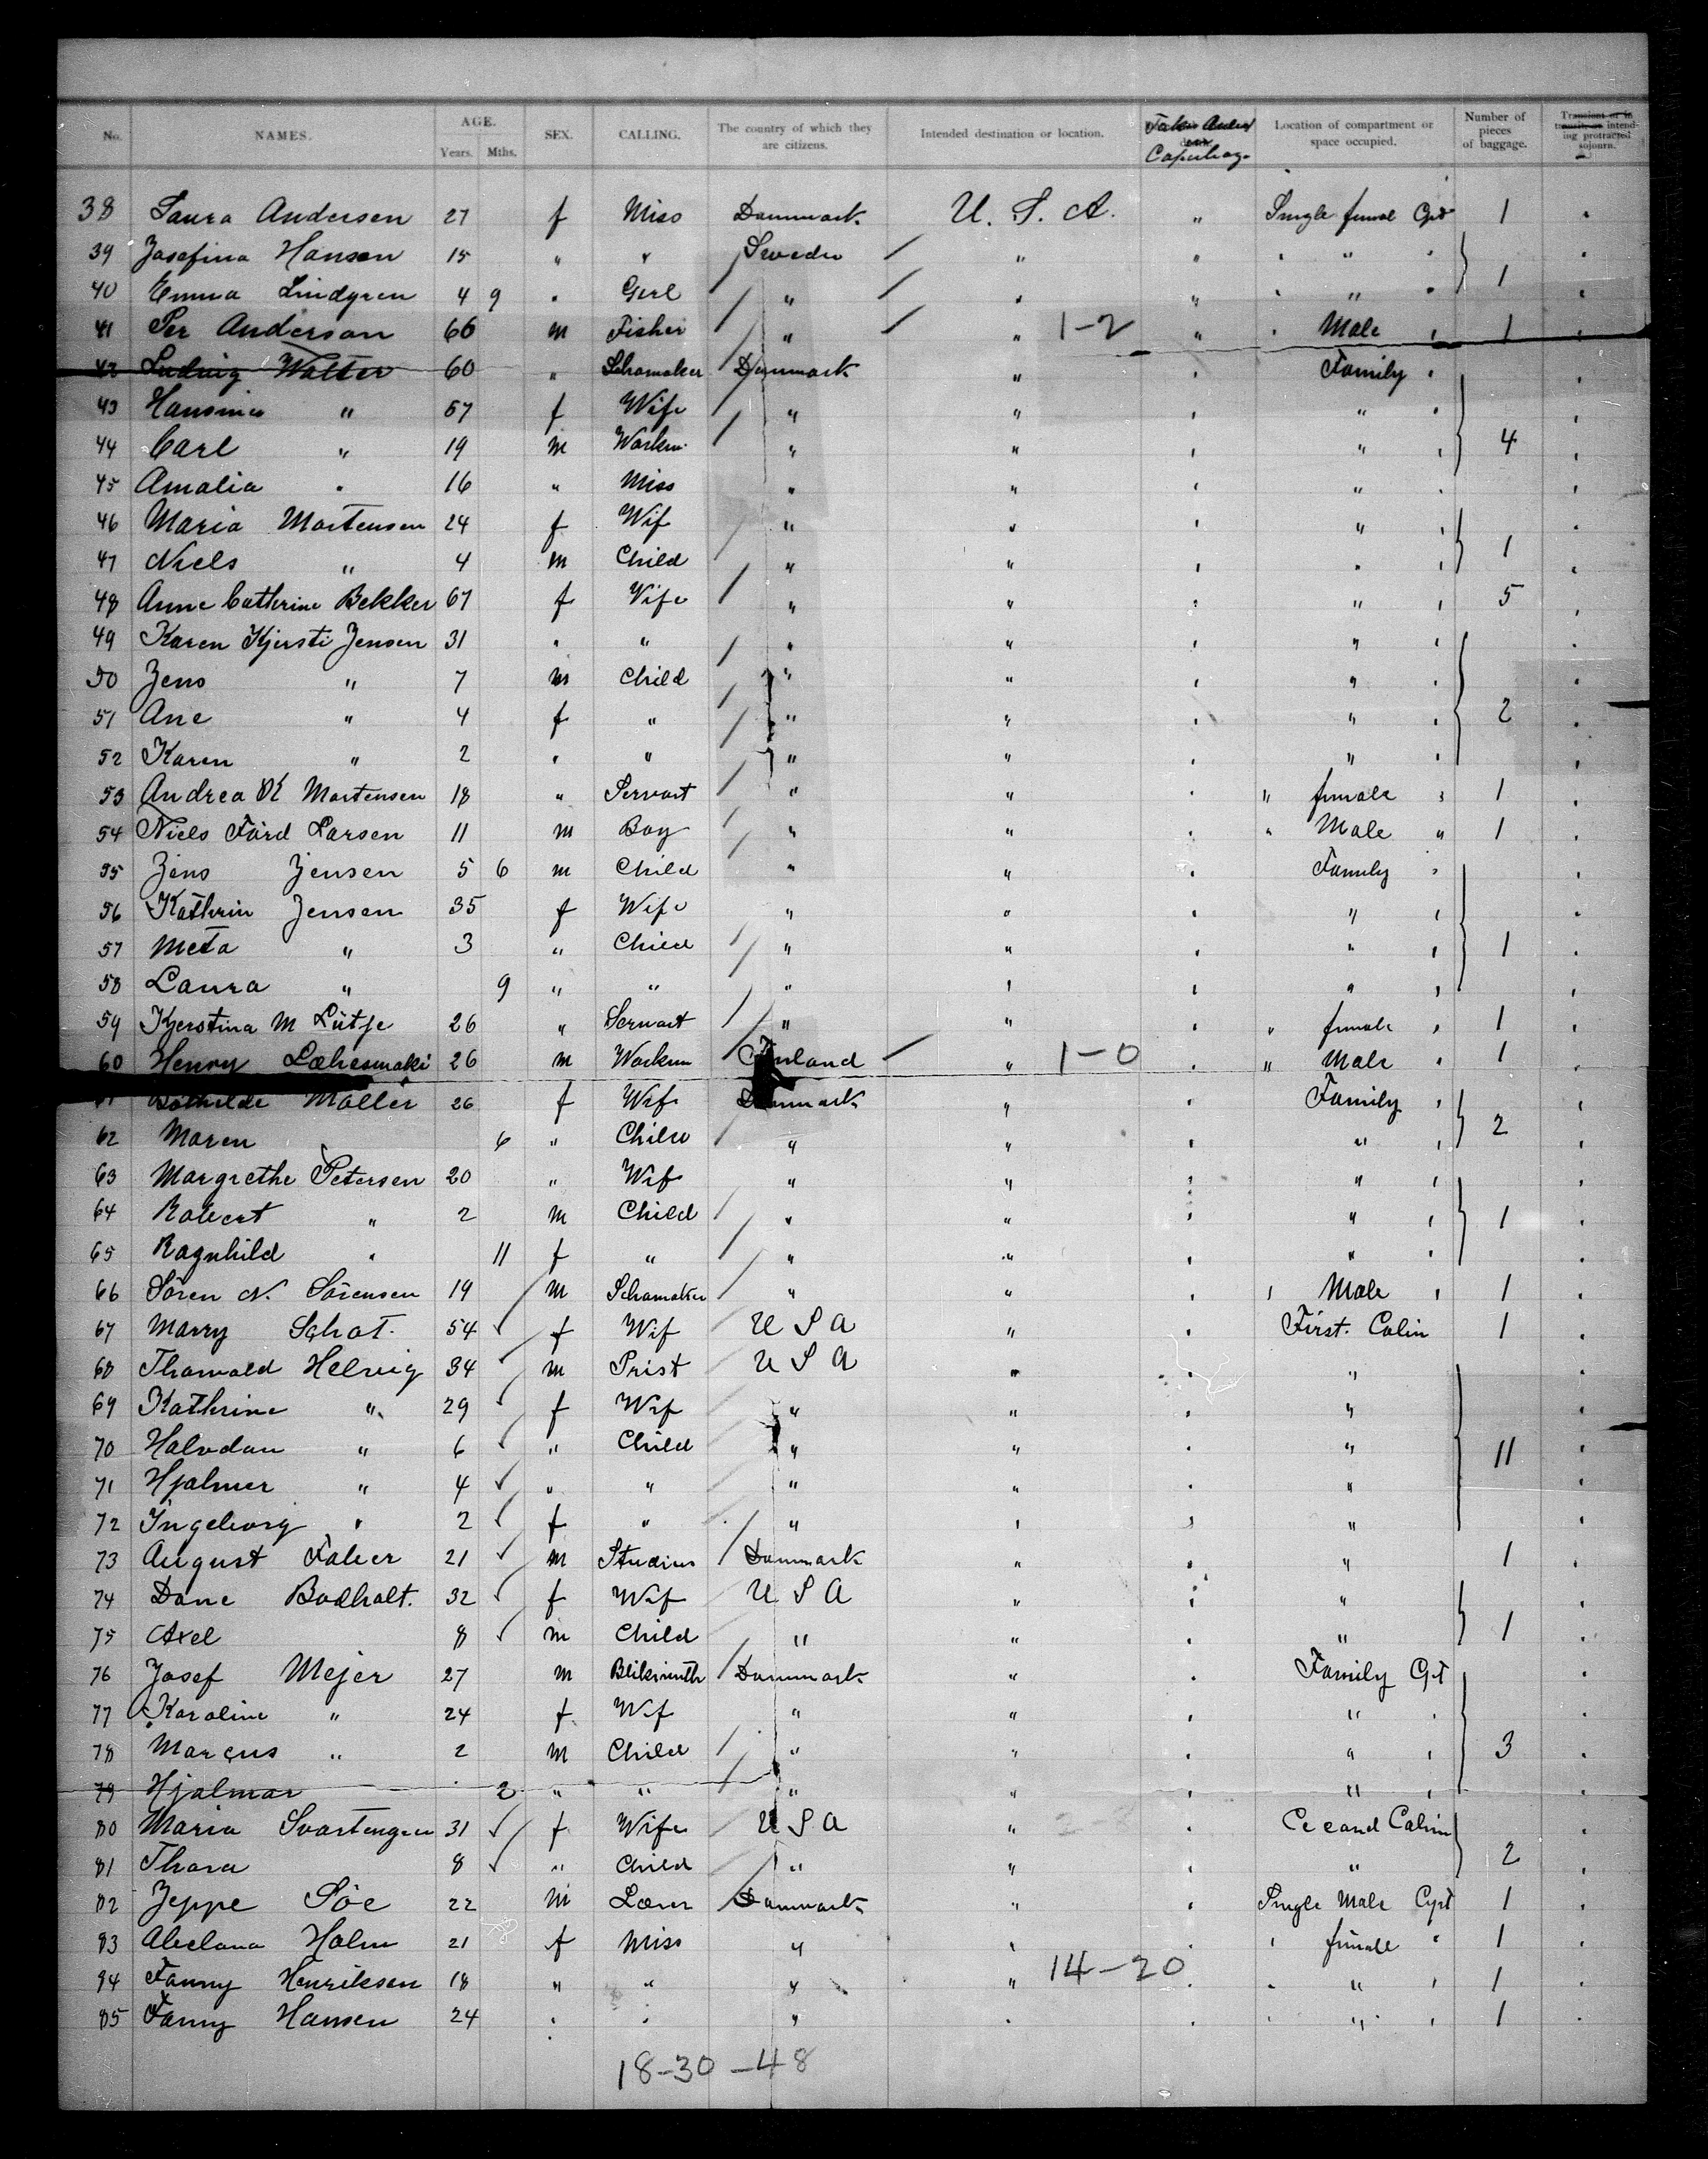 No. NAMES. AGE. Years. Mths. SEX. CALLING. The country of which they are citizens. Intended destination or location. Copenhag. Location of compartment or space occupied. Number of pieces of baggage. Transient or in transit, or intending protracted sojourn.
38 Laura Andersen 27 f Miss Danmark U. S. A. " Single femal Cpt 1 "
39 Josefina Hanson 15 " " Sweden " " " " "
40 Emma Lindgren 4 9 " Gerl " " " " " " 1 "
41 Per Anderson 66 m Fisher " " 1-2 " " Male " 1 "
42 Ludvig Walter 60 " Schomaker Danmark " " Family " "
43 Hansine " 57 f Wife " " " " " "
44 Carl " 19 m Workm " " " " " 4 "
45 Amalia " 16 " Miss " " " " " "
46 Maria Mortensen 24 f Wif " " " " " "
47 Niels " 4 m Child " " " " " 1 "
48 Anne Cathrine Bekker 67 f Wife " " " " " 5 "
49 Karen Kjersti Jensen 31 " " " " " " " "
50 Jens " 7 m Child " " " " " "
51 Ane " 4 f " " " " " " 2 "
52 Karen " 2 " " " " " " " "
53 Andrea K Mortensen 18 " Servort " " " " female " 1 "
54 Niels Fård Larsen 11 m Boy " " " " Male " 1 "
55 Jens Jensen 5 6 m Child " " " Family " "
56 Kathrin Jensen 35 f Wife " " " " " "
57 Meta " 3 " Child " " " " " 1 "
58 Laura " 9 " " " " " " " "
59 Kjerstina M Lütje 26 " Servant " " " " female " 1 "
60 Henry Læhesmaki 26 m Workm Finland " 1-0 " " Male " 1 "
61 Bothilde Møller 26 f Wife Danmark " " Family " "
62 Maren 6 " Child " " " " " 2 "
63 Margrethe Petersen 20 " Wif " " " " " "
64 Robert " 2 m Child " " " " " 1 "
65 Ragnhild " 11 f " " " " " " "
66 Sören N. Sörensen 19 m Schomaker " " " " Male " 1 "
67 Marry Schot. 54 f Wif U S A " " First. Cabin 1 "
68 Thorvald Helvig 34 m Prist U S A " " " "
69 Kathrine " 29 f Wif " " " " "
70 Halvdan " 6 " Child " " " " 11 "
71 Hjalmer " 4 " " " " " " "
72 Ingeborg " 2 f " " " " " "
73 August Faber 21 m Studius Danmark " " " 1 "
74 Dane Bodholt. 32 f Wif U S A " " " "
75 Axel 8 m Child " " " " 1 "
76 Josef Mejer 27 m Bliksmith Danmark " " Family Cpt "
77 Karoline " 24 f Wif " " " " " "
78 Marcus " 2 m Child " " " " " 3 "
79 Hjalmar 2 " " " " " " " "
80 Maria Svartengren 31 f Wife U S A " " Cecand Cabin "
81 Thora 8 " Child " " " " 2 "
82 Jeppe Söe 22 m Lærer Danmark " " Single Male Cpt 1 "
83 Abelona Holm 21 f Miss " " " " female " 1 "
84 Fanny Henriksen 18 " " " " 14-20 " " " " 1 "
85 Fanny Hansen 24 " " " " " " " " 1 "
18-30-48